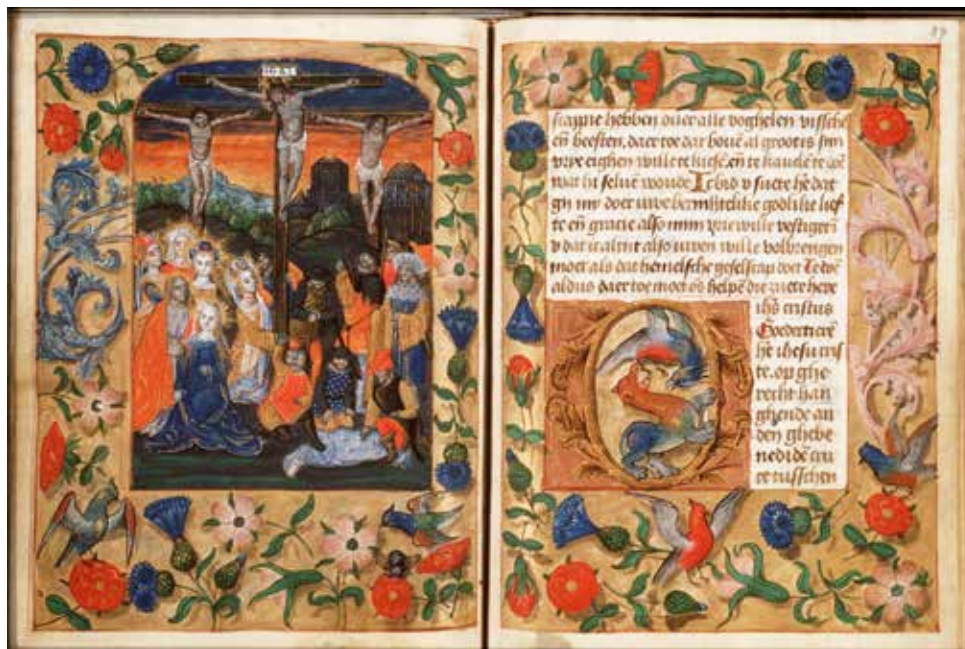 scappie hebben ouer alle voghelen vissche
en̄ beesten. daer toe dat bouē al groot is sijn
vrye eighen wille te kiesē en̄ te
wat hi seluē woude Ic bid v suete hē dat
ghi my doer uwe godlike lief
te en̄ gracie also mijn vrye wille vestighen
v dat ic altijt also uwen wille volbrenghen
moet als dat hemelsche geselscap doet
aldus daer toe moet helpē die zuete here
ihūs cristus
Goedertierē
hē ihesu cris
te. op ghe
recht han
ghende an
den ghebe
nedidē cru
ce tusschen